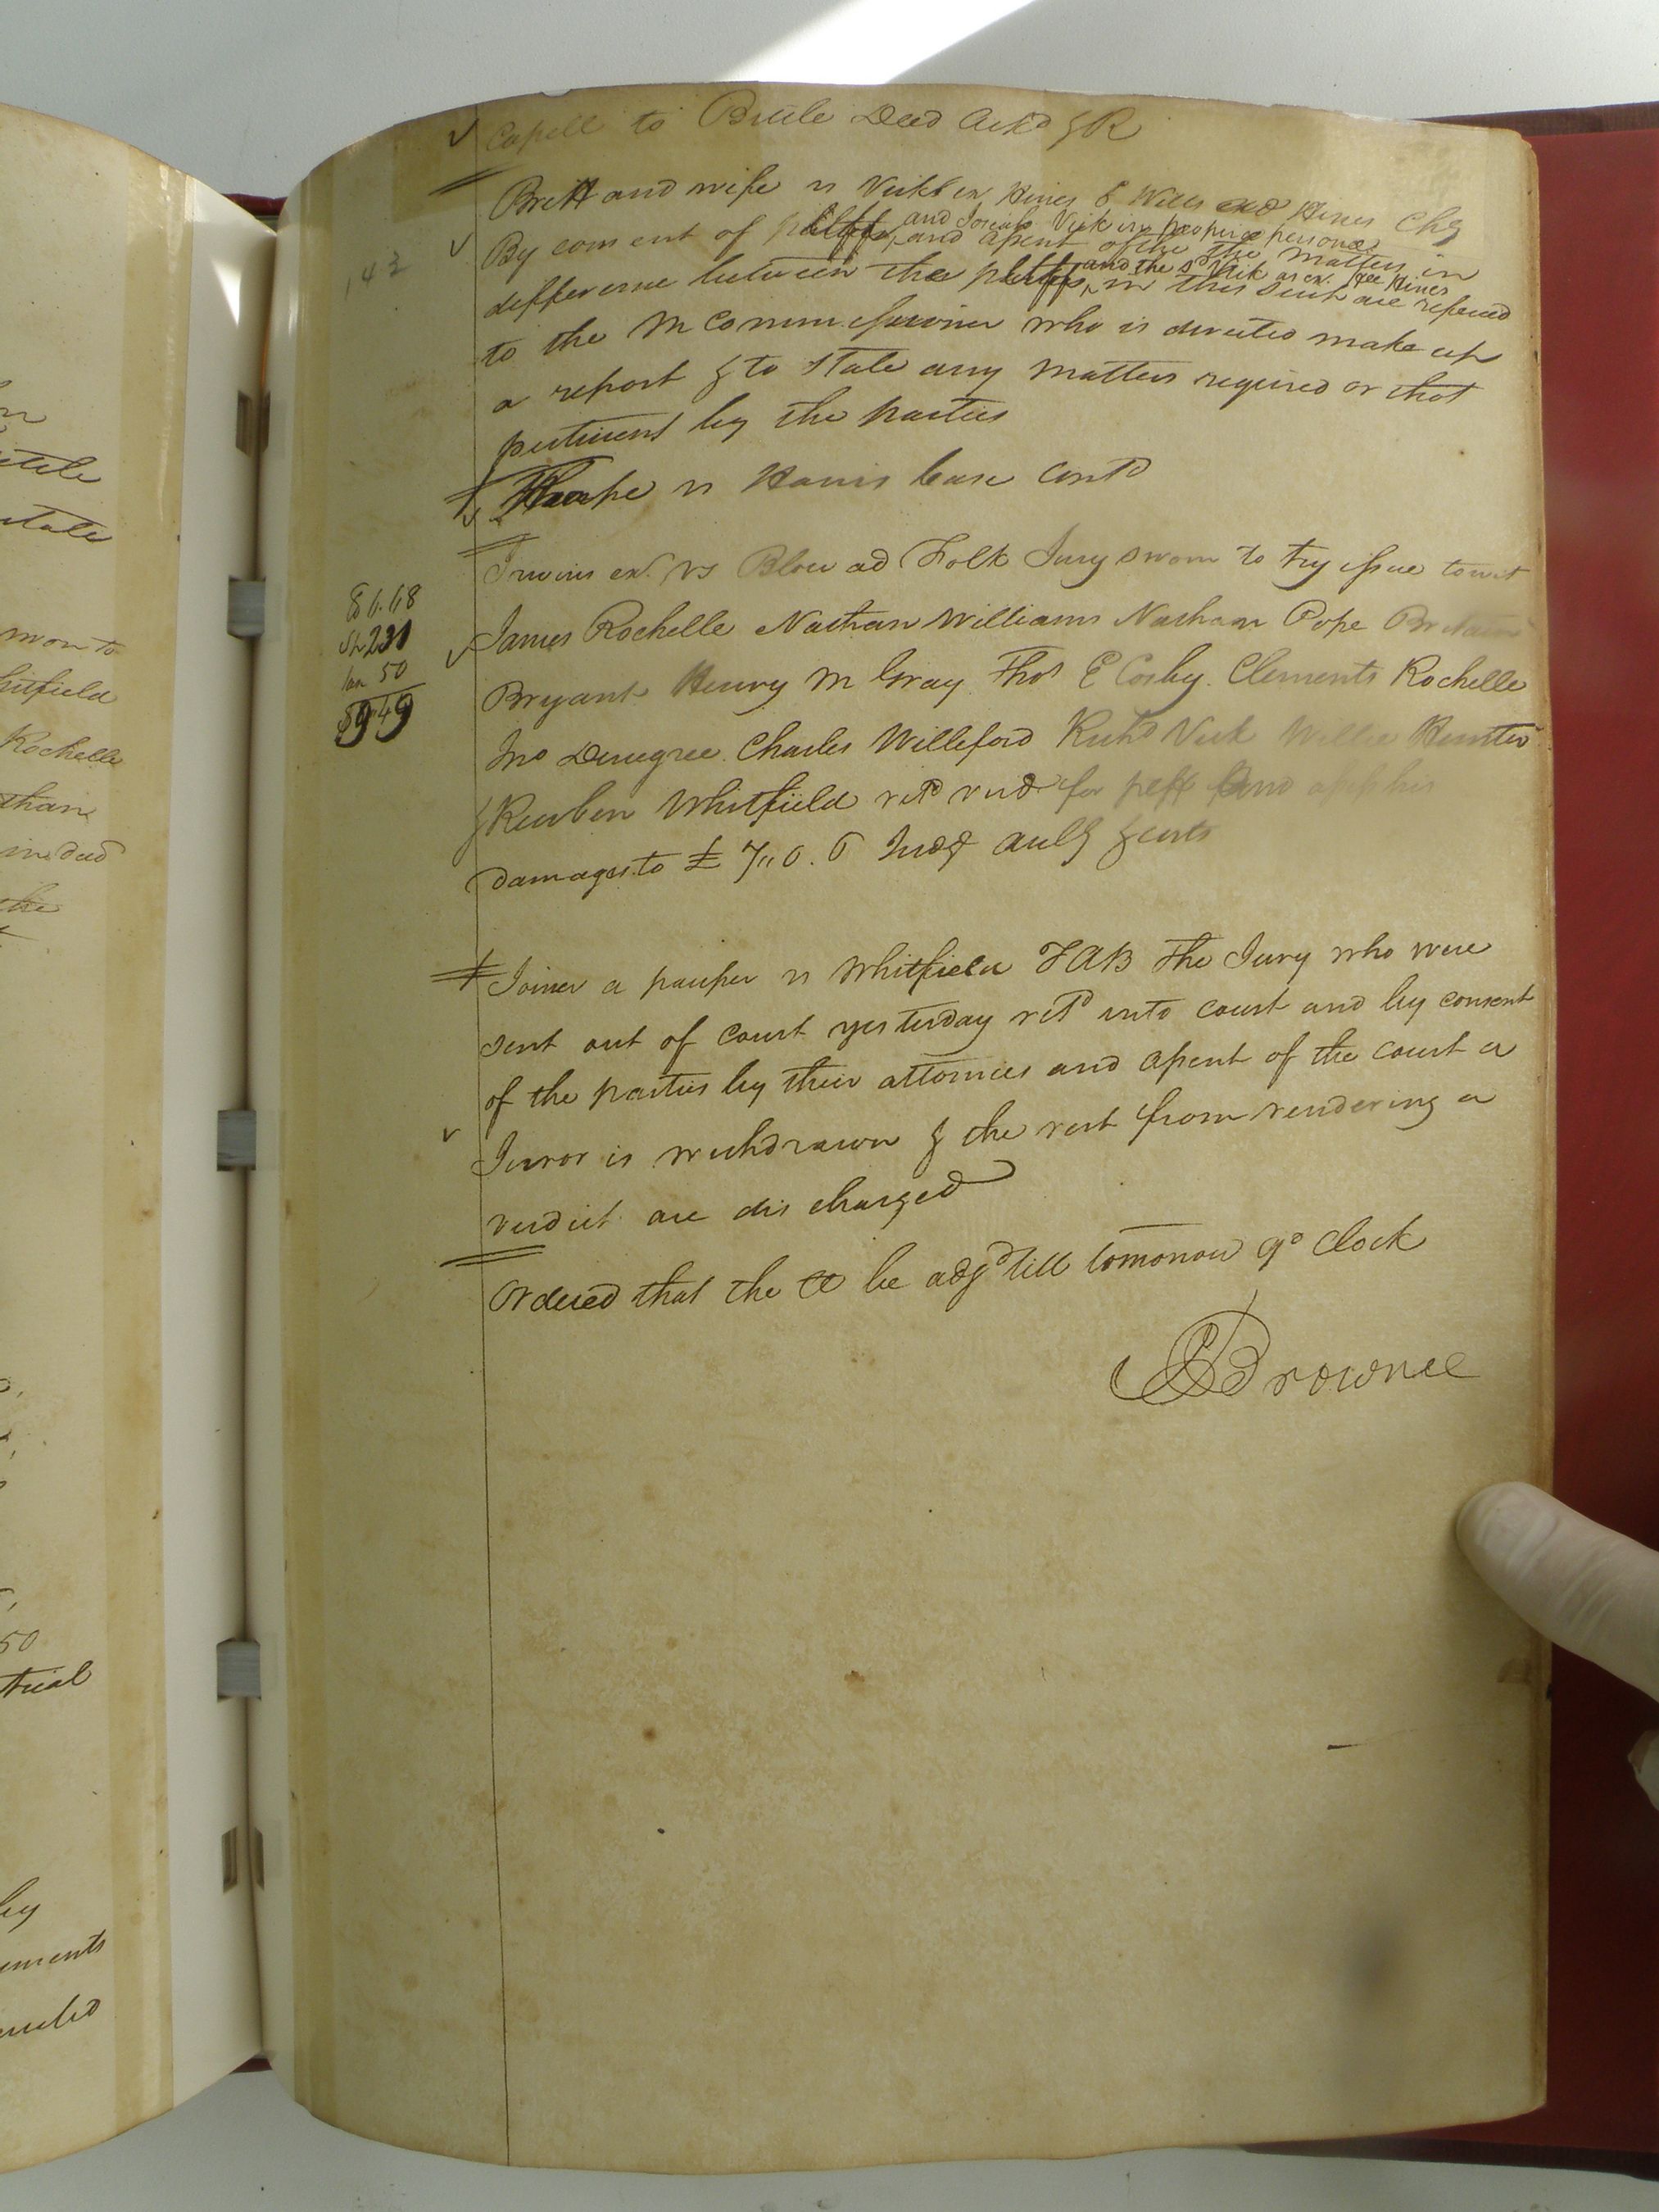 Capell to Bittle Deed Ackd & R
Brett and wife vs Vick ex Hines & Wills exd Hines Chy
and Josiah Vick in proper persons
By consent of pltffs, and assent of the the matters in
and the sd Vick as ex. of Hines
difference between the pltffs, in this suit are refered
to the M Commissioner who is directed make up
a report & to state any matters required or that
pertinent by the parties
Tharpe vs Harris Case contd
Irwins ex. vs Blow ad Folk Jury sworn to try issue towit
James Rochelle Nathan Williams Nathan Pope Britain
Bryant Henry M Gray Thos E Cosby Clements Rochelle
Jno Denegree Charles Williford Richd Vick Willie Hunter
& Reuben Whitfield retd verd for pltff and asses his
damages to £ 7.. 0. 6 Judgt & costs
Joiner a pauper vs Whitfield TAB The Jury who were
sent out of court yesterday retd into court and by consent
of the parties by their attornies and assent of the court a
Juror is withdrawn & the rest from rendering a
verdict are discharged
Ordered that the Ct be adjd till tomorrow 9 o Clock
Browne
143
Sh 231
50
949
itele
state
sworn to
hitfield
Rochelle
than
the
50
trial
by
ements